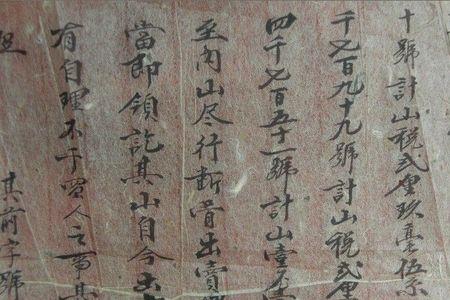 十號計山稅弍厘玖毫伍系
千七百九十九號計山稅弍厘
四千七百五十一號計山壹
至內山尽行斷骨出賣
當即領訖其山自今出
有自理不干買人之事其
但 其前字號